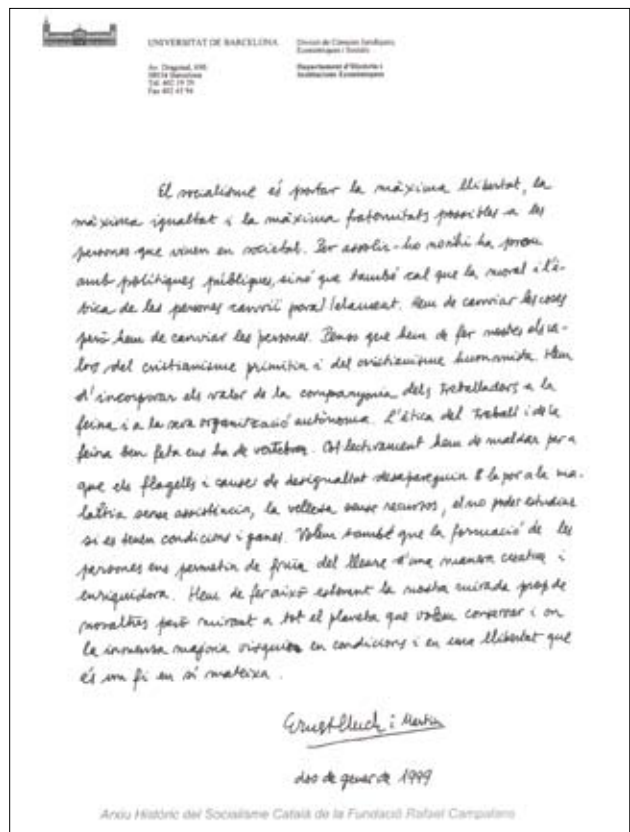 UNIVERSITAT DE BARCELONA
Divisió de Ciències Jurídiques,
Econòmiques i Socials
Av. Diagonal, 690
08034 Barcelona
Tel. 402 19 29
Fax 402 45 94
Departament d'Història i
Institucions Econòmiques
El socialisme és portar la màxima llibertat, la
màxima igualtat i la màxima fraternitats possibles a les
persones que viuen en societat. Per assolir-ho no n'hi ha prou
amb polítiques públiques, sinó que també cal que la moral i l'è-
tica de les persones canvïi paral·lelament. Hem de canviar les coses
però hem de canviar les persones. Penso que hem de fer nostres els va-
lors del cristianisme primitiu i del cristianisme humanista. Hem
d'incorporar els valor de la companyonia dels treballadors a la
feina i a la seva organització autònoma. L'ètica del treball i de la
feina ben feta ens ha de vertebrar. Col·lectivament hem de maldar per a
que els flagells i causes de desigualtat desapareguin: la por a la ma-
laltia sense assistència, la vellesa sense recursos, el no poder estudiar
si es tenen condicions i ganes. Volem també que la formació de les
persones ens permetin de fruir del lleure d'una manera creativa i
enriquidora. Hem de fer això estenent la nostra mirada prop de
nosaltres però mirant a tot el planeta que volem conservar i on
la inmensa majoria visquin en condicions i en una llibertat que
és un fi en sí mateixa.
Ernest Lluch i Martín
dos de gener de 1999
Arxiu Històric del Socialisme Català de la Fundació Rafael Campalans